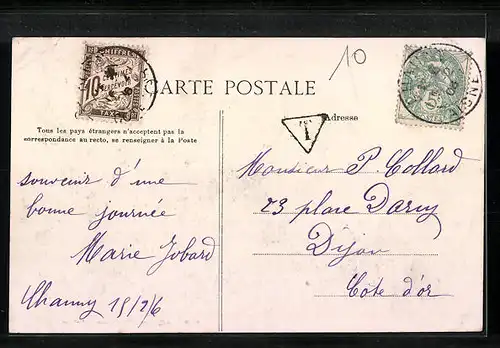 10
CHIFFRE
10 CENTIMES
À PERCEVOIR
TAXE
CARTE POSTALE
T
Adresse
Tous les pays étrangers n'acceptent pas la
correspondance au recto, se renseigner à la Poste
souvenir d'une
bonne journée
Marie Jobard
Monsieur P. Collard
23 place Darcy
Dijon
Côte d'or